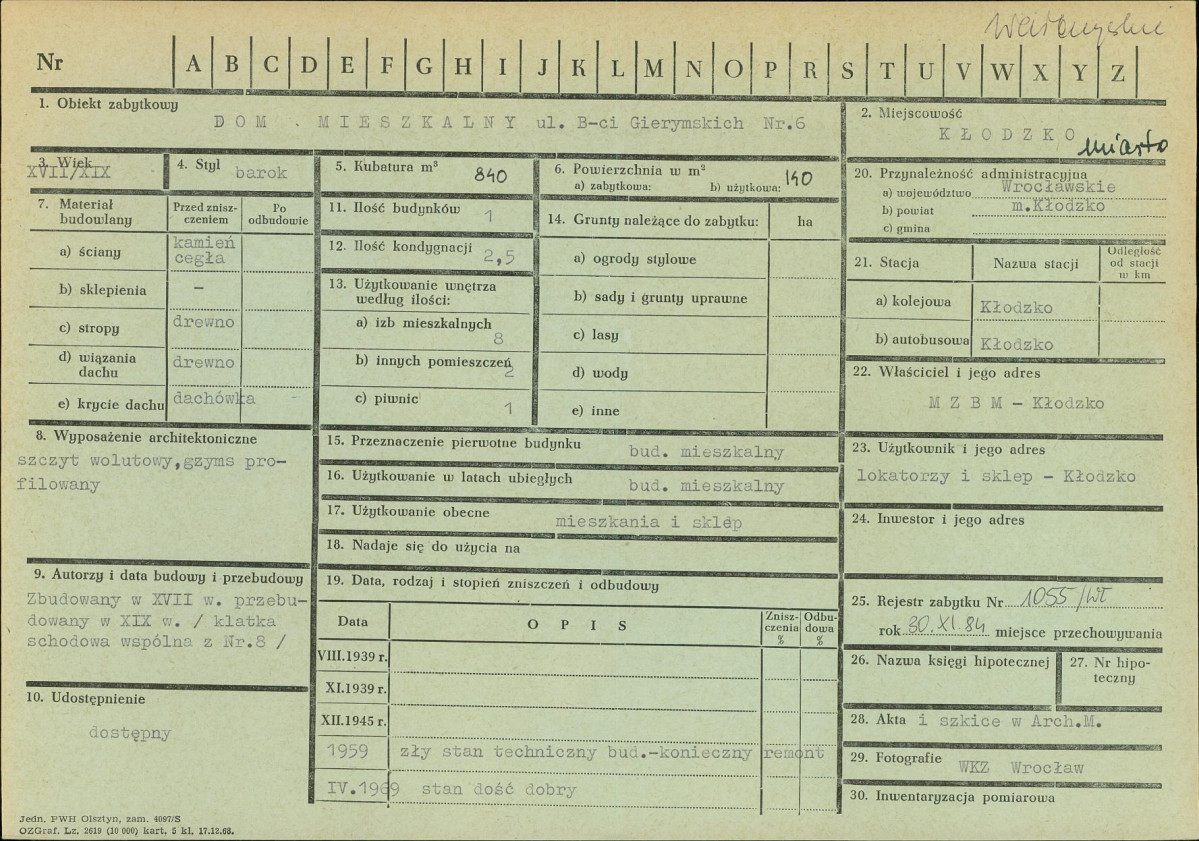 Wałbrzyskie
Nr A B C D E F G H I J K L M N O P R S T U V W X Y Z
1. Obiekt zabytkowy
DOM . MIESZKALNY ul. B-ci Gierymskich Nr.6
2. Miejscowość
KŁODZKO miasto
3. Wiek
XVII/XIX
4. Styl barok
5. Kubatura m³ 840
6. Powierzchnia w m²
a) zabytkowa: b) użytkowa: 140
7. Materiał budowlany
Przed zniszczeniem
Po odbudowie
a) ściany kamień
cegła
b) sklepienia –
c) stropy drewno
d) wiązania dachu drewno
e) krycie dachu dachówka -
8. Wyposażenie architektoniczne
szczyt wolutowy,gzyms pro-
filowany
9. Autorzy i data budowy i przebudowy
Zbudowany w XVII w. przebu-
dowany w XIX w. / klatka
schodowa wspólna z Nr.8 /
10. Udostępnienie
dostępny
11. Ilość budynków 1
12. Ilość kondygnacji 2,5
13. Użytkowanie wnętrza
według ilości:
a) izb mieszkalnych 8
b) innych pomieszczeń 2
c) piwnic 1
14. Grunty należące do zabytku: ha
a) ogrody stylowe
b) sady i grunty uprawne
c) lasy
d) wody
e) inne
15. Przeznaczenie pierwotne budynku bud. mieszkalny
16. Użytkowanie w latach ubiegłych bud. mieszkalny
17. Użytkowanie obecne mieszkania i sklep
18. Nadaje się do użycia na
19. Data, rodzaj i stopień zniszczeń i odbudowy
Data OPIS Zniszczenia % Odbudowa %
VIII.1939 r.
XI.1939 r.
XII.1945 r.
1959 zły stan techniczny bud.-konieczny remont
IV.1969 stan dość dobry
20. Przynależność administracyjna
a) województwo Wrocławskie
b) powiat m.Kłodzko
c) gmina
21. Stacja Nazwa stacji Odległość od stacji w km
a) kolejowa Kłodzko
b) autobusowa Kłodzko
22. Właściciel i jego adres
M Z B M – Kłodzko
23. Użytkownik i jego adres
lokatorzy i sklep – Kłodzko
24. Inwestor i jego adres
25. Rejestr zabytku Nr 1055/Wł
rok 30.XI.84 miejsce przechowywania
26. Nazwa księgi hipotecznej
27. Nr hipo-
teczny
28. Akta i szkice w Arch.M.
29. Fotografie WKZ Wrocław
30. Inwentaryzacja pomiarowa
Jedn. PWH Olsztyn, zam. 4097/S
OZGraf. Lz. 2619 (10 000) kart. 5 kl. 17.12.68.